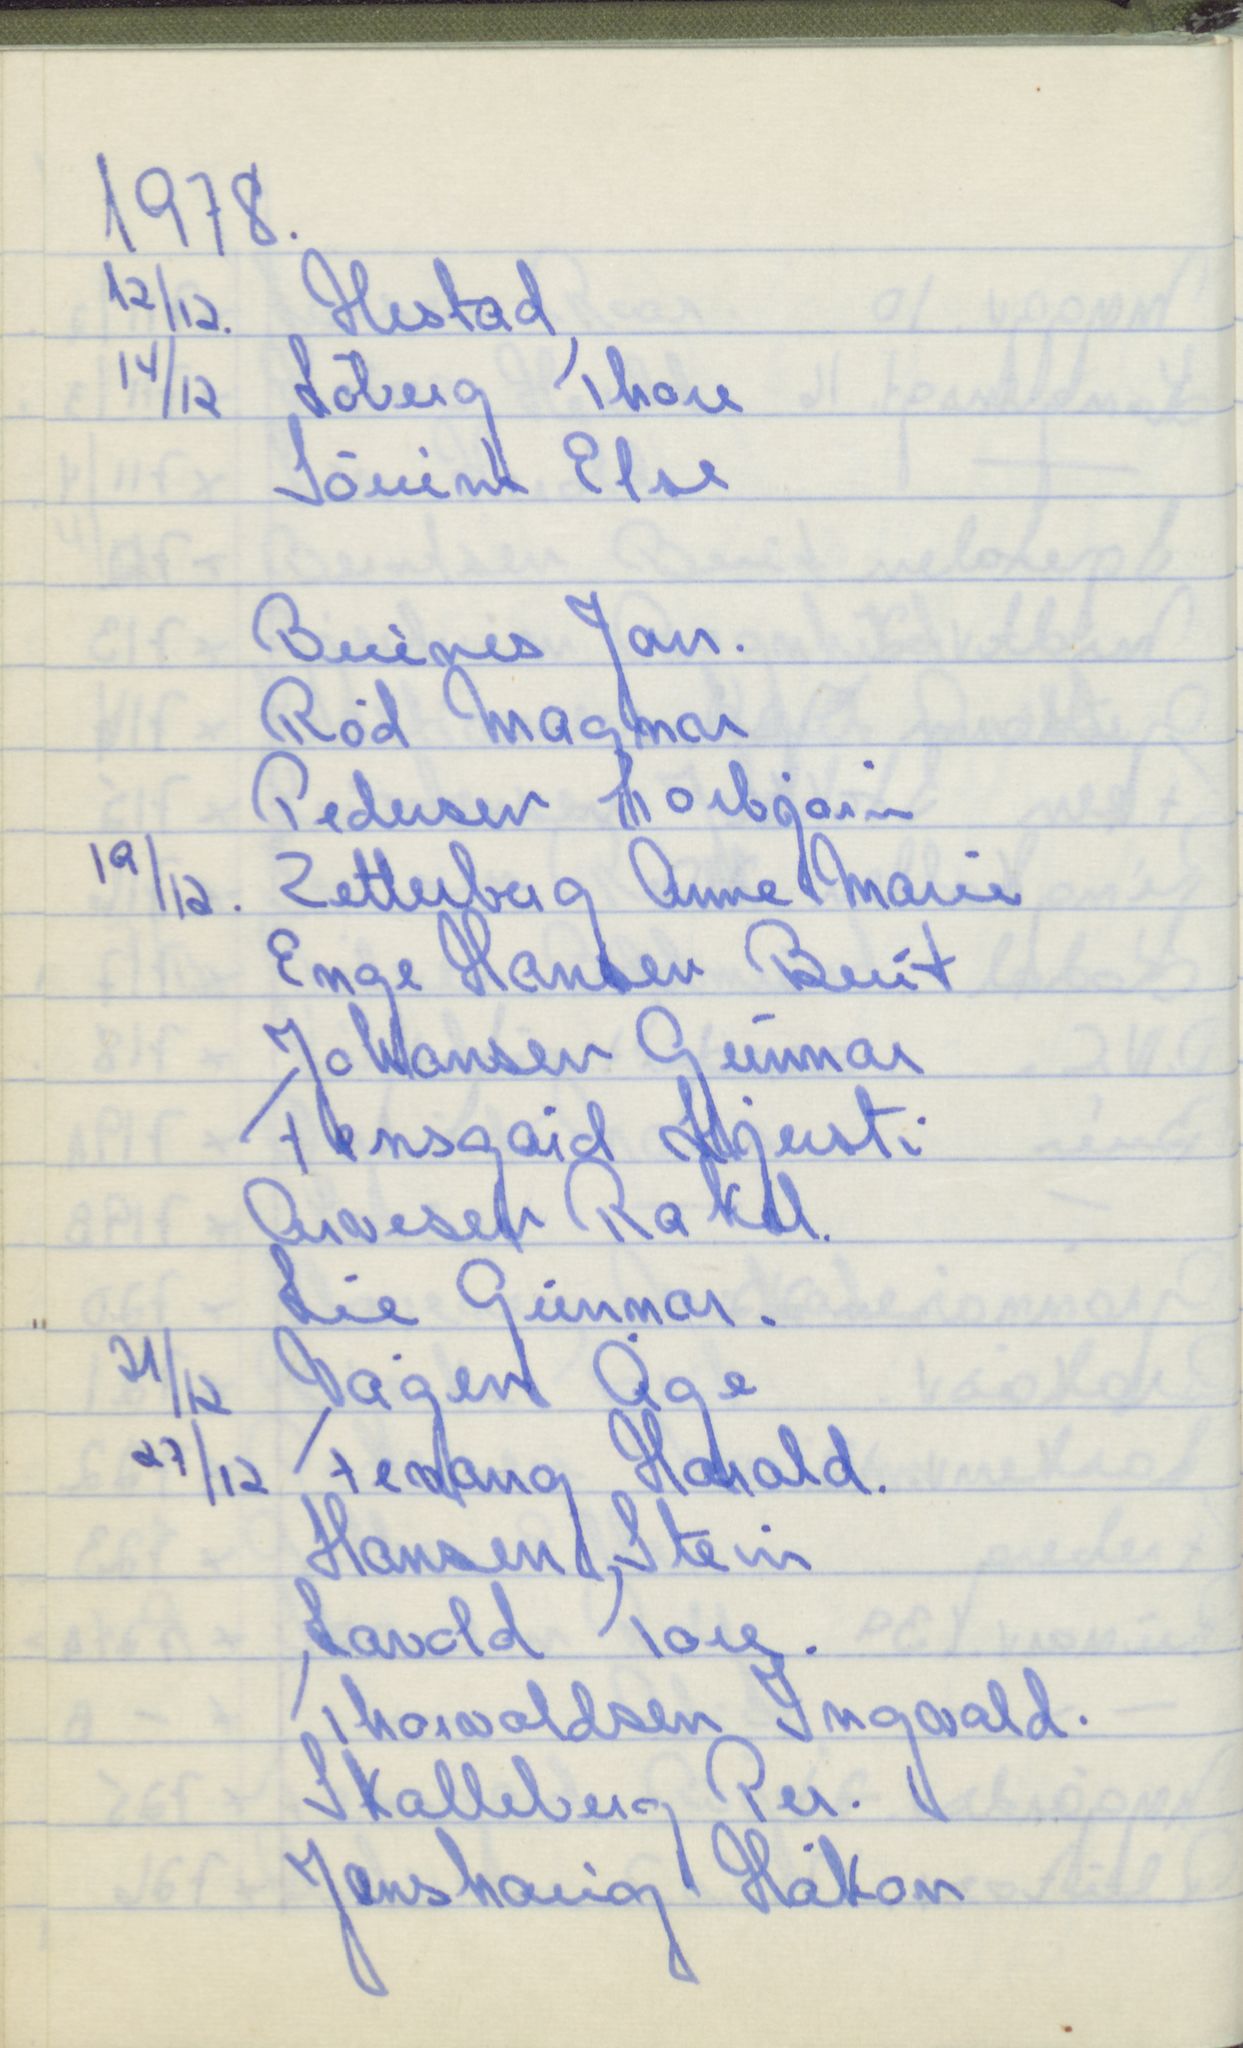 1978.
12/12. Hestad
14/12 Löberg Thore
Sörum Else
Buènes Jan.
Röd Magnar
Pedersen Thorbjørn
19/12. Zetterberg Anne Marie
Enge Hansen Berit
Johansen Gunnar
Tensgård Kjersti
Arvesen Rakel.
Lie Gunnar.
21/12 Vågen Åge
27/12 Tenang Harald.
Hansen Stein
Lavold Tore.
Thorvaldsen Ingvald.
Skalleberg Per.
Jenshaug Håkon